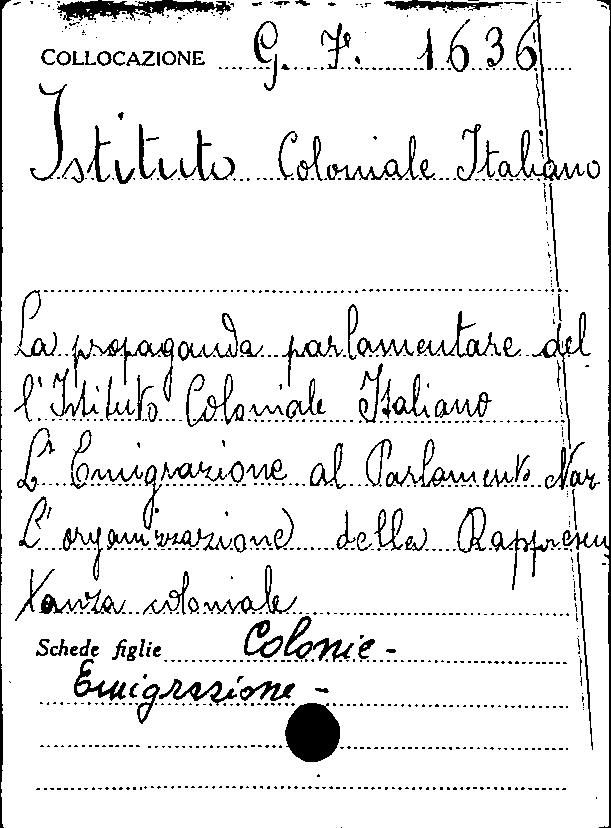 COLLOCAZIONE G. F. 1636
Istituto Coloniale Italiano
La propaganda parlamentare del
l'Istituto Coloniale Italiano
L' Emigrazione al Parlamento Naz
L' organizzazione della Rappresen
tanza coloniale
Schede figlie Colonie -
Emigrazione -